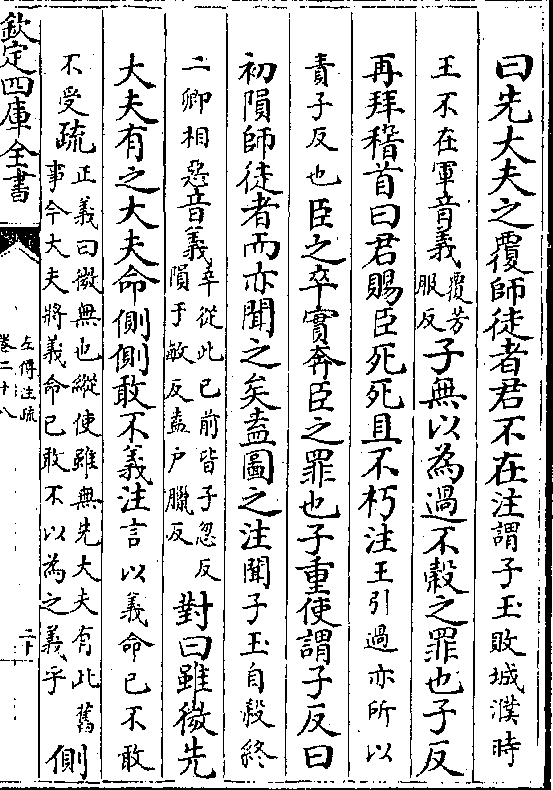 曰先大夫之覆師徒者君不在注謂子玉敗城濮時
王不在軍音義覆芳服反子無以為過不穀之罪也子反
再拜稽首曰君賜臣死死且不朽注王引過亦所以
責子反也臣之卒實奔臣之罪也子重使謂子反曰
初隕師徒者而亦聞之矣盍圖之注聞子玉自殺終
二卿相惡音義卒從此已前皆子忽反隕于敏反盍戶臘反對曰雖微先
大夫有之大夫命側側敢不義注言以義命已不敢
不受疏正義曰微無也縱使雖無先大夫有此舊事今大夫將義命已敢不以為之義乎側
欽定四庫全書
左傳注疏
卷二十八
二十